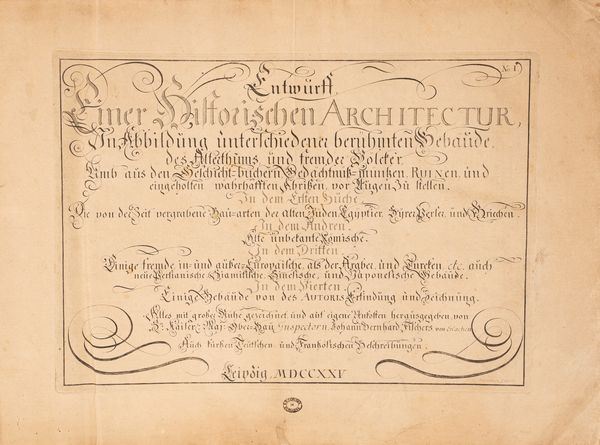 N. I.
Entwurff
Einer Historischen ARCHITECTUR,
In Abbildung unterschiedener berühmten Gebäude,
des Alterthums und fremder Völcker,
Umb aus den Geschicht-büchern, Gedächtnuß-müntzen, RUINEN, und
eingeholten wahrhafften Abrißen, vor Augen zu stellen.
In dem Ersten Buche.
Die von der Zeit vergrabene Bau-arten der alten Jüden, Egyptier, Syrer, Perser, und Griechen.
In dem Andren.
Alte unbekante Römische.
In dem Dritten
Einige fremde in- und außer-Europäische, als der Araber, und Türcken, etc. auch
neue Persianische, Siamitische, Sinesische, und Japonesische Gebäude.
In dem Vierten.
Einige Gebäude von des AUTORIS Erfindung und Zeichnung.
Alles mit großer Mühe gezeichnet, und auf eigene Unkosten herausgegeben, von
Kaiserl. Maj. Ober-Bau Inspectorn, Johann Bernhard, Fischers von Erlachen.
Auch kurtzen Teutschen und Frantzösischen Beschreibungen.
Leipzig, MDCCXXV